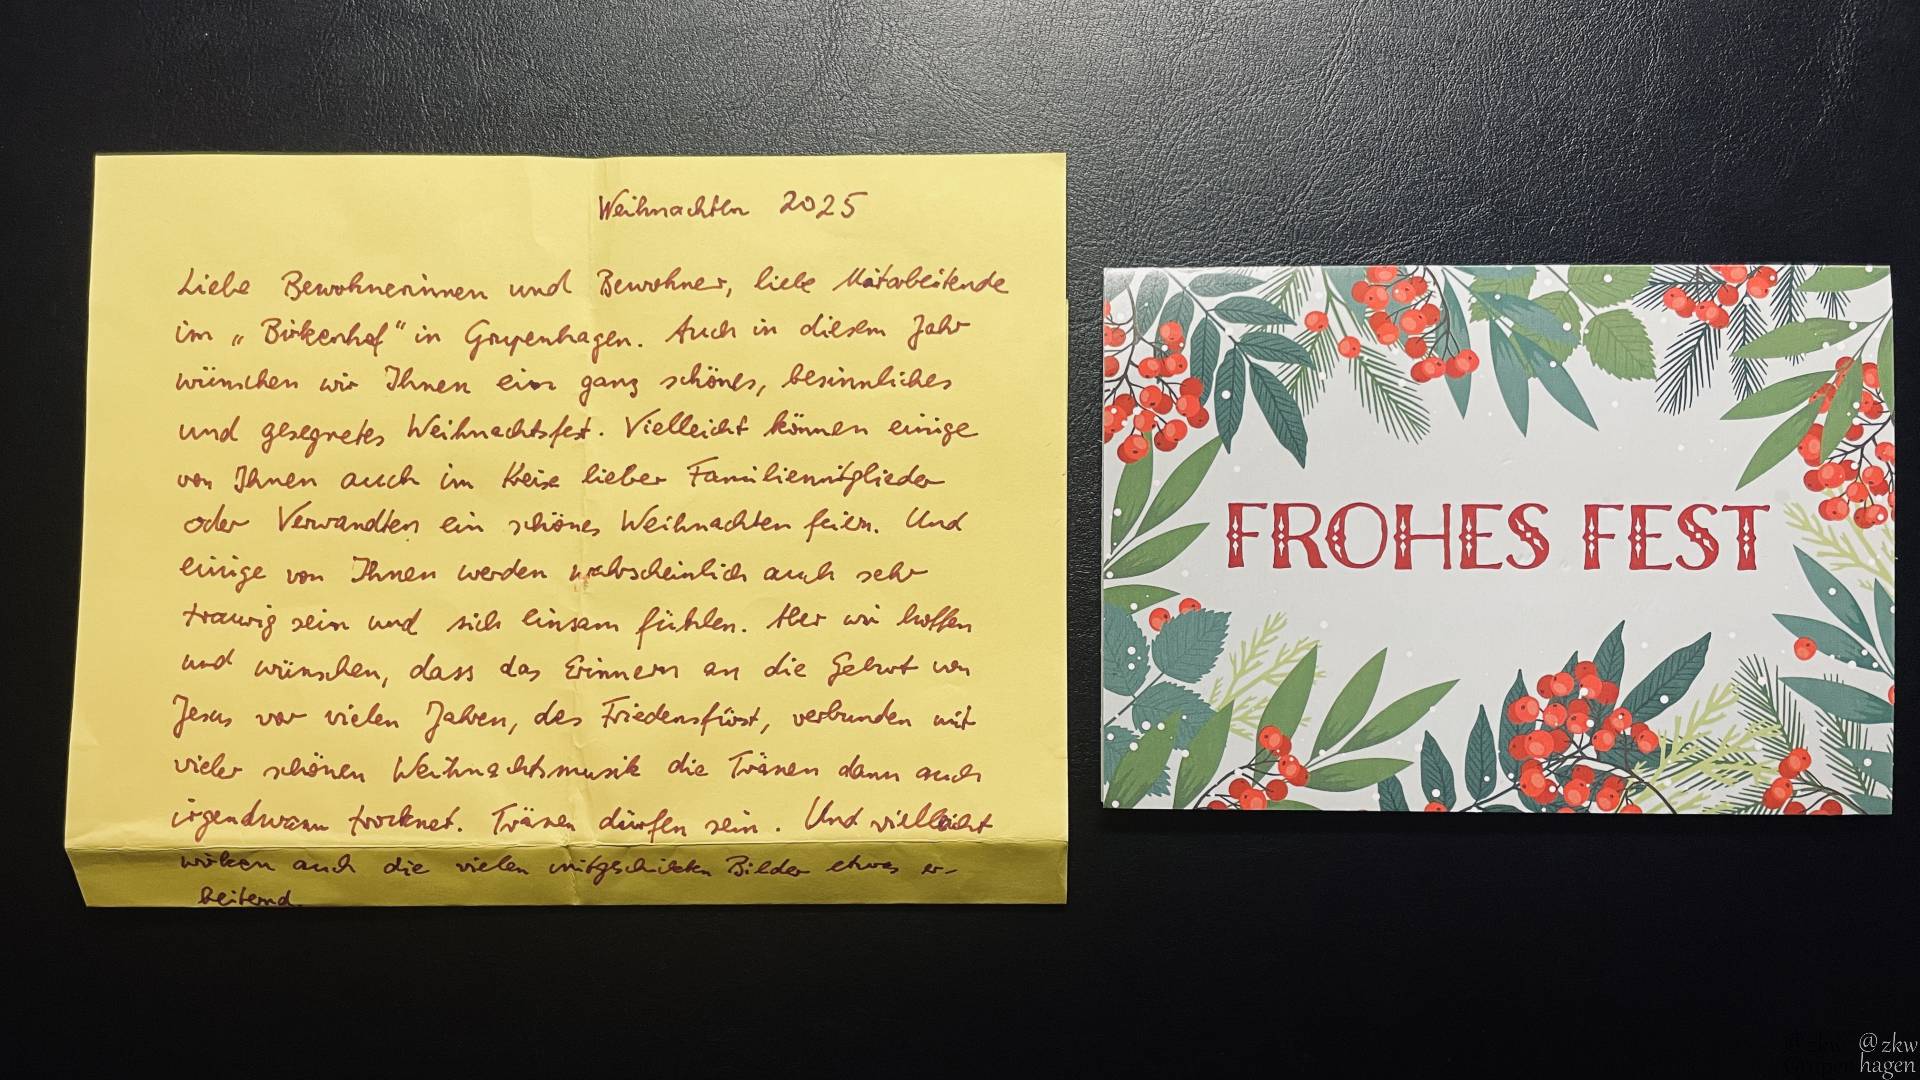 Weihnachten 2025
Liebe Bewohnerinnen und Bewohner, liebe Mitarbeitende
im „Birkenhof“ in Grupenhagen. Auch in diesem Jahr
wünschen wir Ihnen ein ganz schönes, besinnliches
und gesegnetes Weihnachtsfest. Vielleicht können einige
von Ihnen auch im Kreise lieber Familienmitglieder
oder Verwandten ein schönes Weihnachten feiern. Und
einige von Ihnen werden wahrscheinlich auch sehr
traurig sein und sich einsam fühlen. Aber wir hoffen
und wünschen, dass das Erinnern an die Geburt von
Jesus vor vielen Jahren, des Friedensfürst, verbunden mit
vieler schönen Weihnachtsmusik die Tränen dann auch
irgendwann trocknet. Tränen dürfen sein. Und vielleicht
wirken auch die vielen mitgeschickten Bilder etwas er-
heiternd.
FROHES FEST
@zkw
hagen